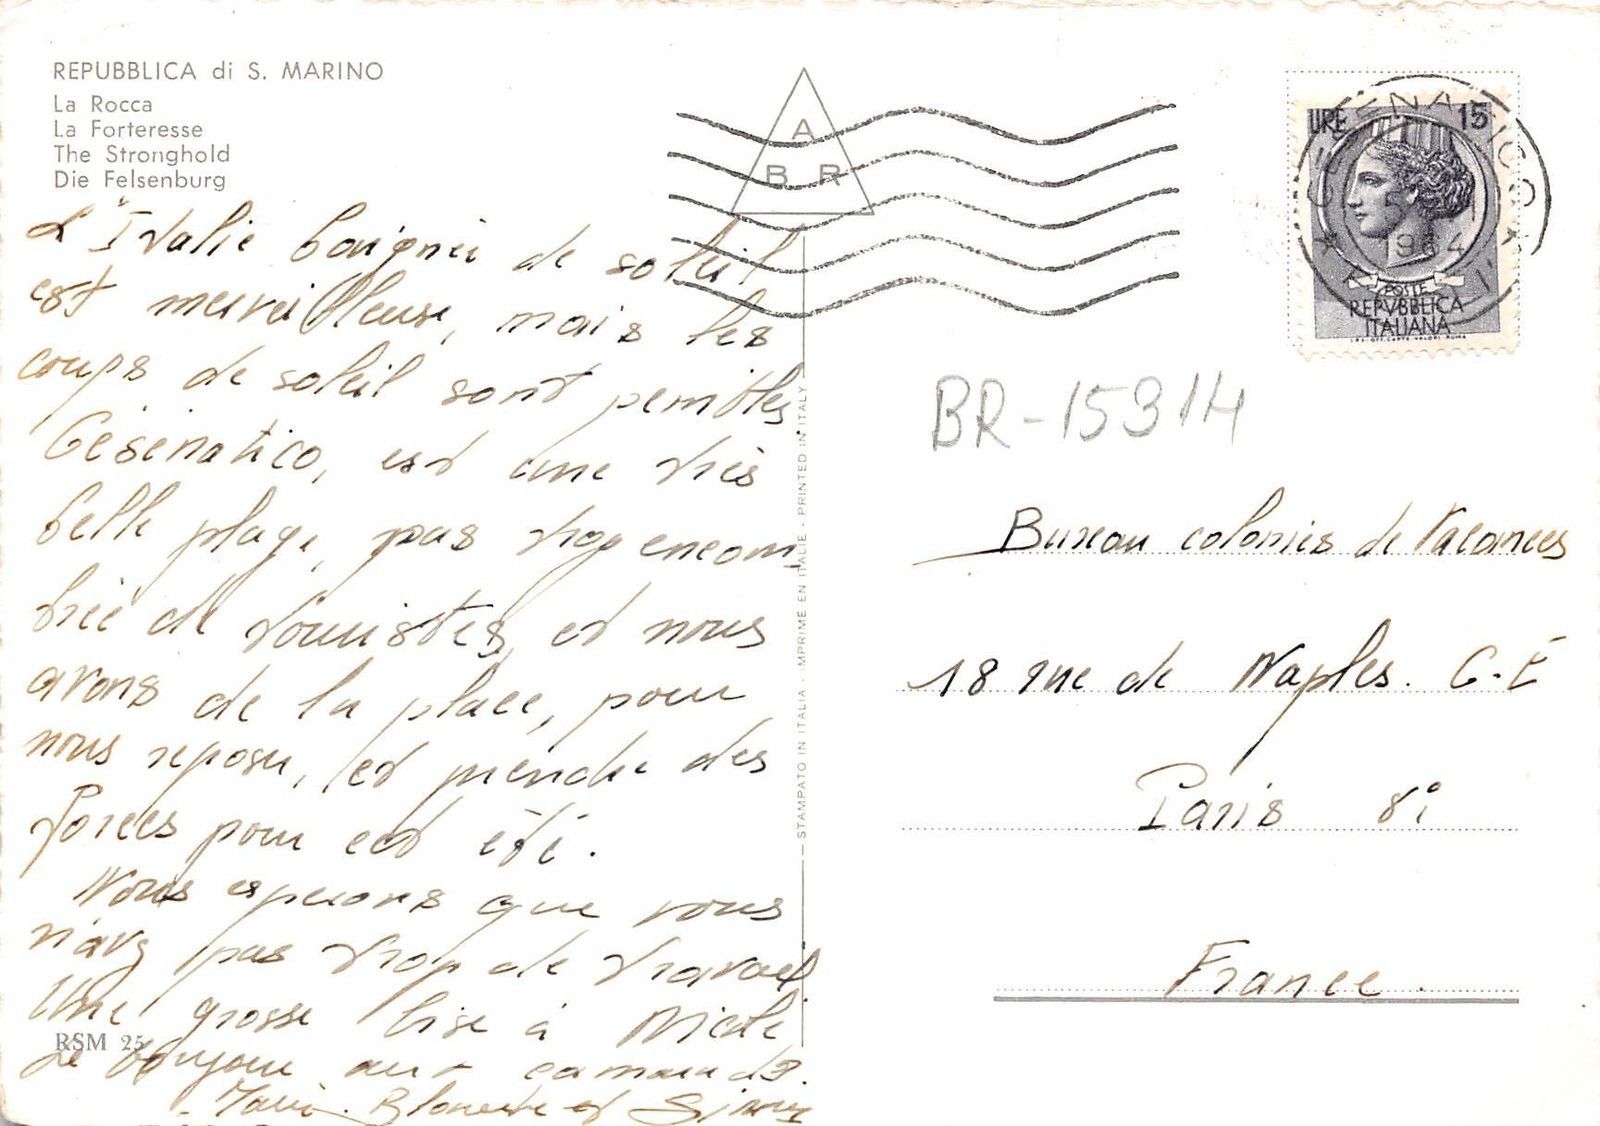 REPUBBLICA di S. MARINO
La Rocca
La Forteresse
The Stronghold
Die Felsenburg
A
B R
LIRE 15
1964
POSTE
REPVBBLICA
ITALIANA
I.P.S. OFF. CARTE VALORI ROMA
BR-15314
L'Italie baignée de soleil
est merveilleuse, mais les
coups de soleil sont penibles.
Césénatico, est une très
belle plage, pas trop encom
brée de touristes, et nous
avons de la place, pour
nous reposer, et prendre des
forces pour cet été.
Nous esperons que vous
n'avez pas trop de travail
Une grosse bise à Nicole
Le bonjour aux camarades.
Blanche et
RSM 25
STAMPATO IN ITALIA - IMPRIME EN ITALIE - PRINTED IN ITALY
Bureau colonies de Vacances
18 rue de Naples. C.E
Paris 8e
France.